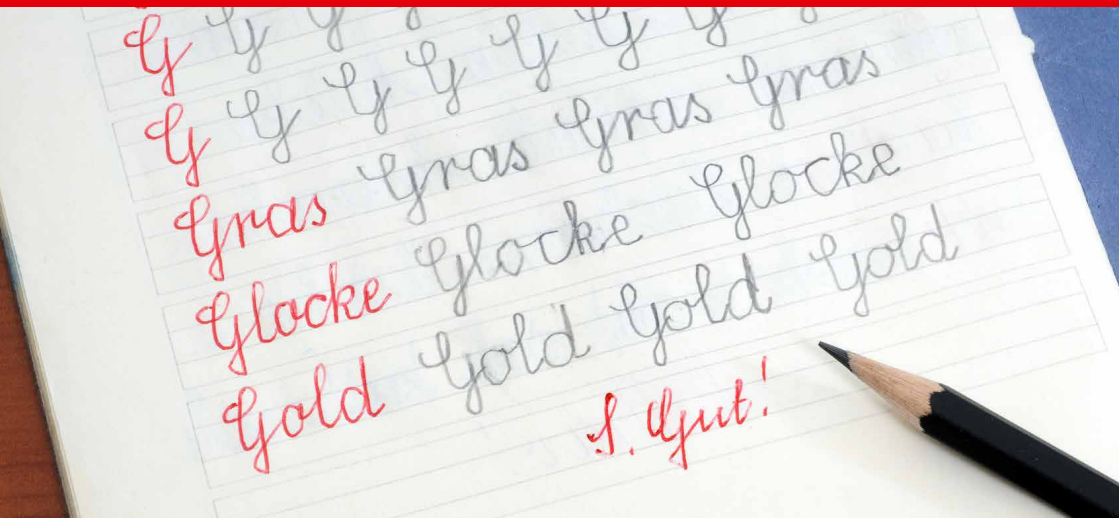 G G G G
G G G G G G G G
Gras Gras Gras Gras
Glocke Glocke Glocke
Gold Gold Gold Gold
S. Gut!